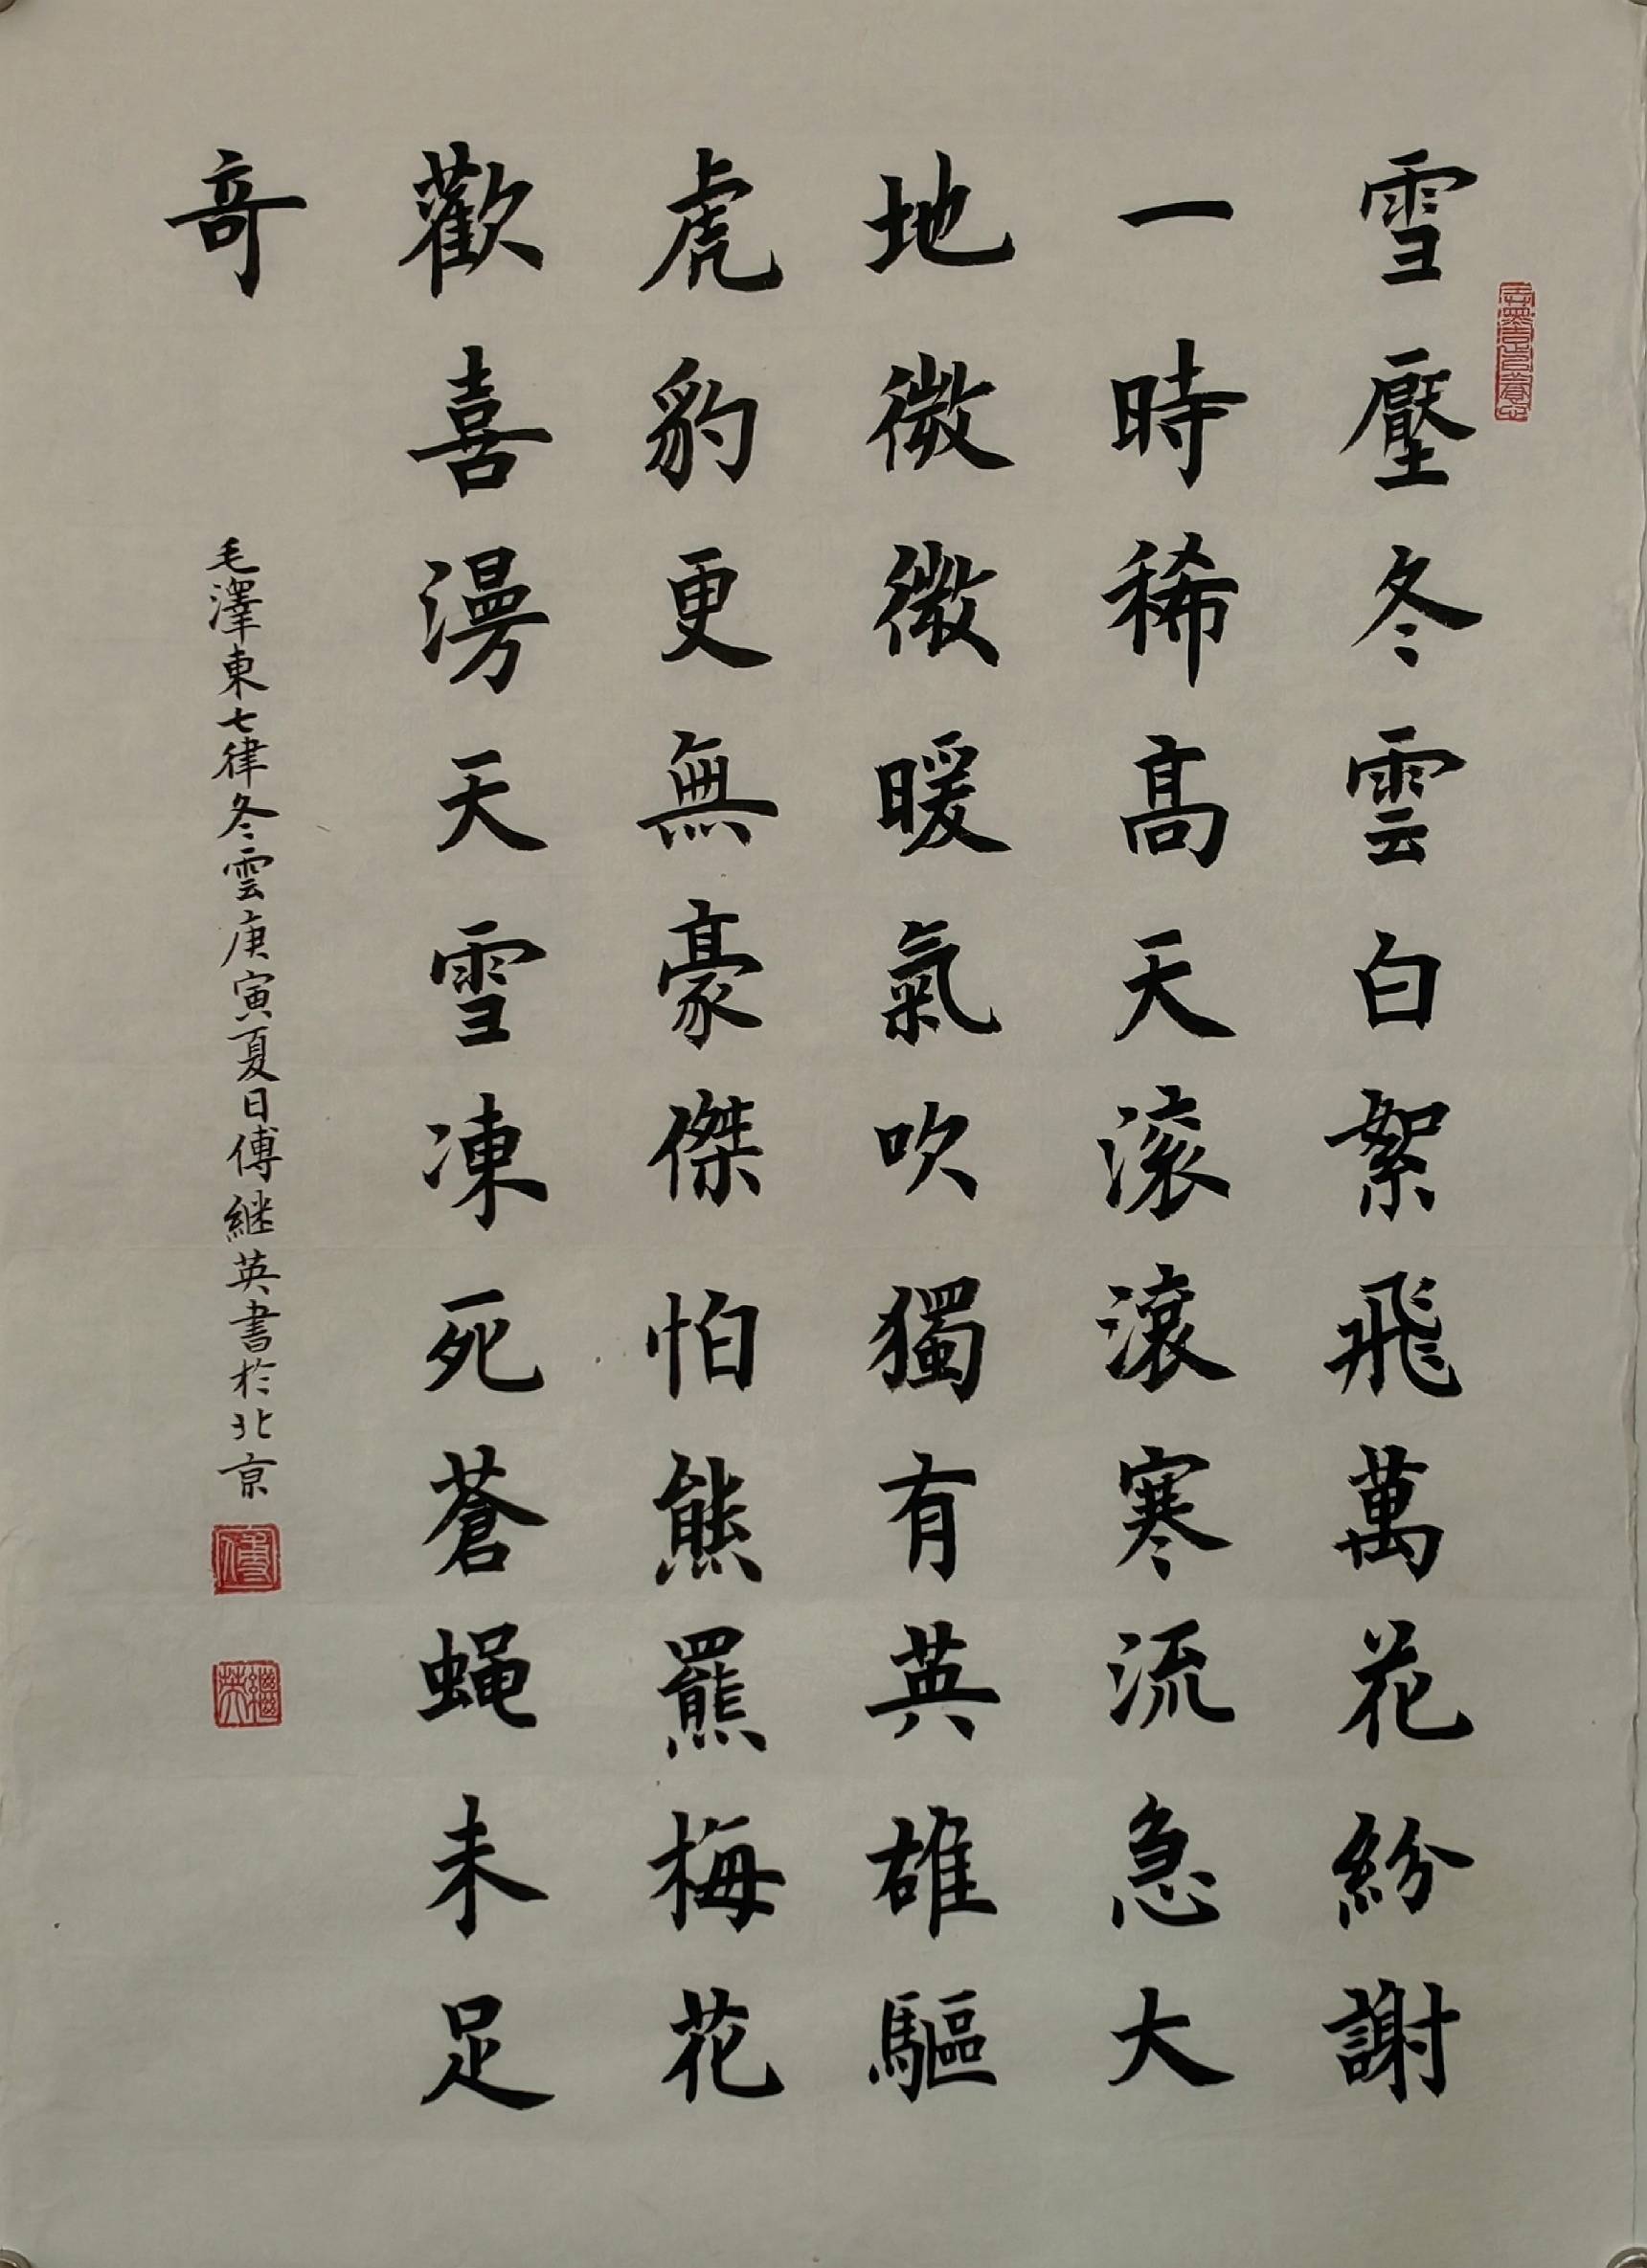 雪壓冬雲白絮飛萬花紛謝
一時稀高天滾滾寒流急大
地微微暖氣吹獨有英雄驅
虎豹更無豪傑怕熊羆梅花
歡喜漫天雪凍死蒼蝇未足
奇
毛澤東七律冬雲庚寅夏日傅继英書於北京
傅
繼英